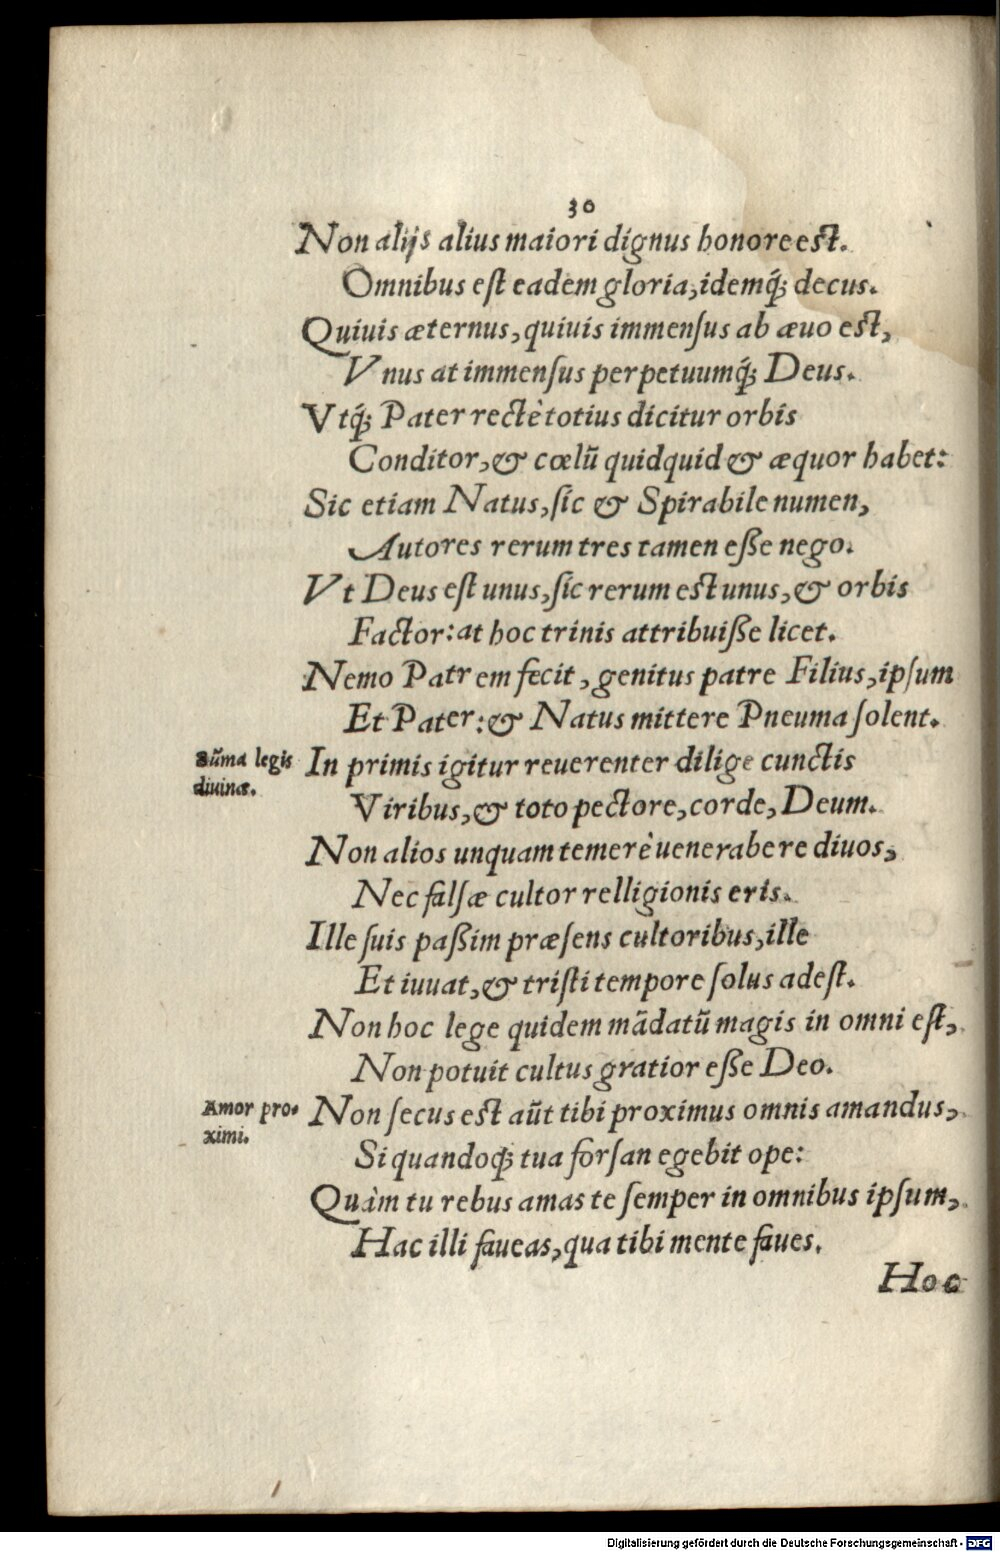 30
Non alijs alius maiori dignus honore est.
Omnibus eſt eadem gloria, idemq́; decus.
Quiuis æternus, quiuis immenſus ab æuo est,
Vnus at immenſus perpetuumq́; Deus.
Vtq́; Pater rectè totius dicitur orbis
Conditor, & cœlũ quidquid & æquor habet:
Sic etiam Natus, ſic & Spirabile numen,
Autores rerum tres tamen eſſe nego.
Vt Deus eſt unus, ſic rerum est unus, & orbis
Factor: at hoc trinis attribuiſſe licet.
Nemo Patrem fecit, genitus patre Filius, ipſum
Et Pater: & Natus mittere Pneuma ſolent.
Sũma legis
diuinæ.
In primis igitur reuerenter dilige cunctis
Viribus, & toto pectore, corde, Deum.
Non alios unquam temerè uenerabere diuos,
Nec falſæ cultor relligionis eris.
Ille ſuis paſſim præſens cultoribus, ille
Et iuuat, & triſti tempore ſolus adeſt.
Non hoc lege quidem mãdatũ magis in omni eſt,
Non potuit cultus gratior eſſe Deo.
Amor pro-
ximi.
Non ſecus est aũt tibi proximus omnis amandus,
Si quandoq́; tua forſan egebit ope:
Quàm tu rebus amas te ſemper in omnibus ipſum,
Hac illi faueas, qua tibi mente faues.
Hoc
Digitalisierung gefördert durch die Deutsche Forschungsgemeinschaft - DFG